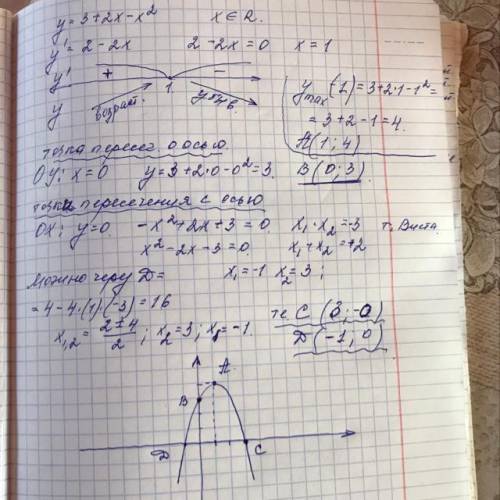 y = 3+2x-x² x ∈ R.
y' = 2-2x 2-2x=0 x=1
y' + 1 -
y возраст. убыв.
y max (1) = 3+2·1-1² =
= 3+2-1=4.
A(1; 4)
точка перес. с осью
Oy: x=0 y=3+2·0-0²=3. B(0; 3)
точки пересечения с осью
Ox: y=0 -x²+2x+3=0 x₁·x₂=-3 т. Виета.
x²-2x-3=0. x₁+x₂=+2
Можно через D= x₁=-1 x₂=3;
=4-4·(1)(-3)=16
x₁,₂ = 2±4/2; x₂=3; x₁=-1.
т. C (3; 0)
D(-1; 0)
A
B
D C